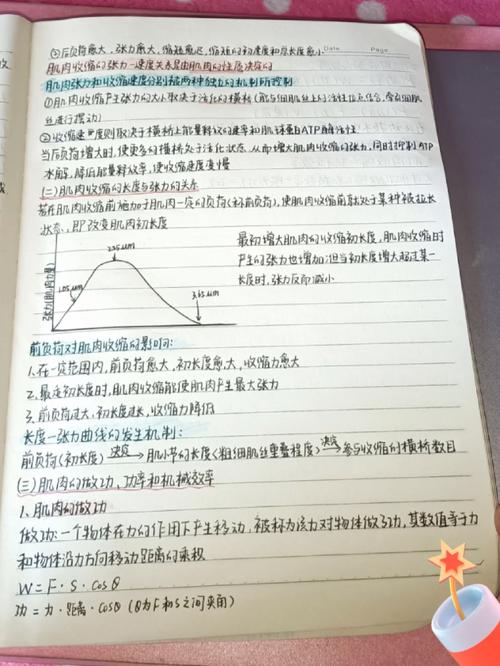 ③后负荷愈大，张力愈大，缩短愈迟，缩短的初速度和总长度愈小
Date Page
肌肉收缩的张力—速度关系是由肌肉的性质决定的
肌肉张力和收缩速度分别被两种独立的机制所控制
①肌肉收缩产生张力的大小取决于活化的横桥(能与细肌丝上的活性位点结合,牵引细肌
丝进行摆动)
②收缩速度则取决于横桥上能量释放的速率和肌球蛋白ATP酶活性
当后负荷增大时,使更多的横桥处于活化状态,从而增大肌肉收缩的张力,同时抑制ATP
水解,降低能量释放率,使收缩速度变慢
(二)肌肉收缩的长度与张力的关系
若在肌肉收缩前施加于肌肉一定的负荷(称前负荷),使肌肉收缩前就处于某种被拉长
状态,即改变肌肉初长度
张力(肌肉力量)
1.05μm
2.25μm
3.65μm
最初增大肌肉的收缩初长度,肌肉收缩时
产生的张力也增加;但当初长度增大超过某一
长度时,张力反而减小
前负荷对肌肉收缩的影响:
1.在一定范围内,前负荷愈大,初长度愈大,收缩力愈大
2.最适初长度时,肌肉收缩能使肌肉产生最大张力
3.前负荷过大,初长度过长,收缩力降低
长度—张力曲线的发生机制:
前负荷(初长度) 决定→ 肌小节的长度(粗细肌丝重叠程度) 决定→ 参与收缩的横桥数目
(三)肌肉的做功、功率和机械效率
1、肌肉的做功
做功:一个物体在力的作用下产生移动,被称为该力对物体做了功,其数值等于力
和物体沿力方向移动距离的乘积
W=F·S·cosθ
功=力·距离·cosθ(θ为F和S之间夹角)